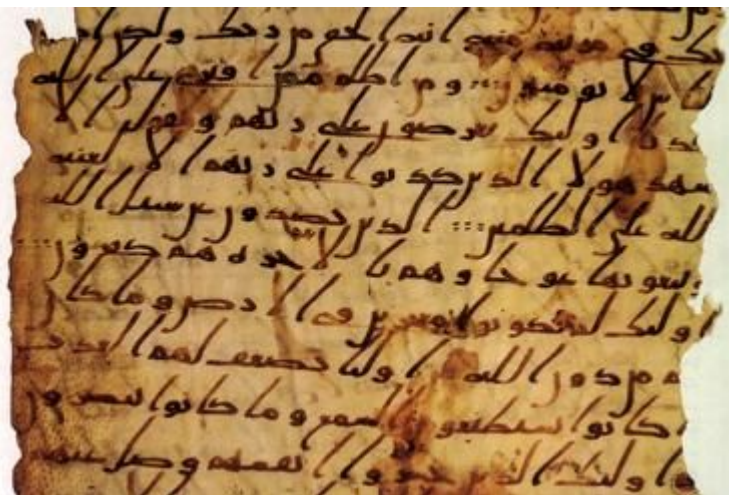 تك في مريه منه انه الحق من ربك ولكن ا
لا يومنون ومن اظلم ممن افترى على الله
كذبا اوليك يعرضون على ربهم ويقول الا
شهد هولا الذين كذبوا على ربهم الا لعنه
الله على الظلمين الذين يصدون عن سبيل الله
ويبغونها عوجا وهم بالاخره هم كفرون
اوليك لم يكونوا معجزين في الارض وما كا
من دون الله من اوليا يضعف لهم العذ
كانوا يستطيعون السمع وما كانوا يبصرون
اوليك الذين خسروا انفسهم وضل عنهم